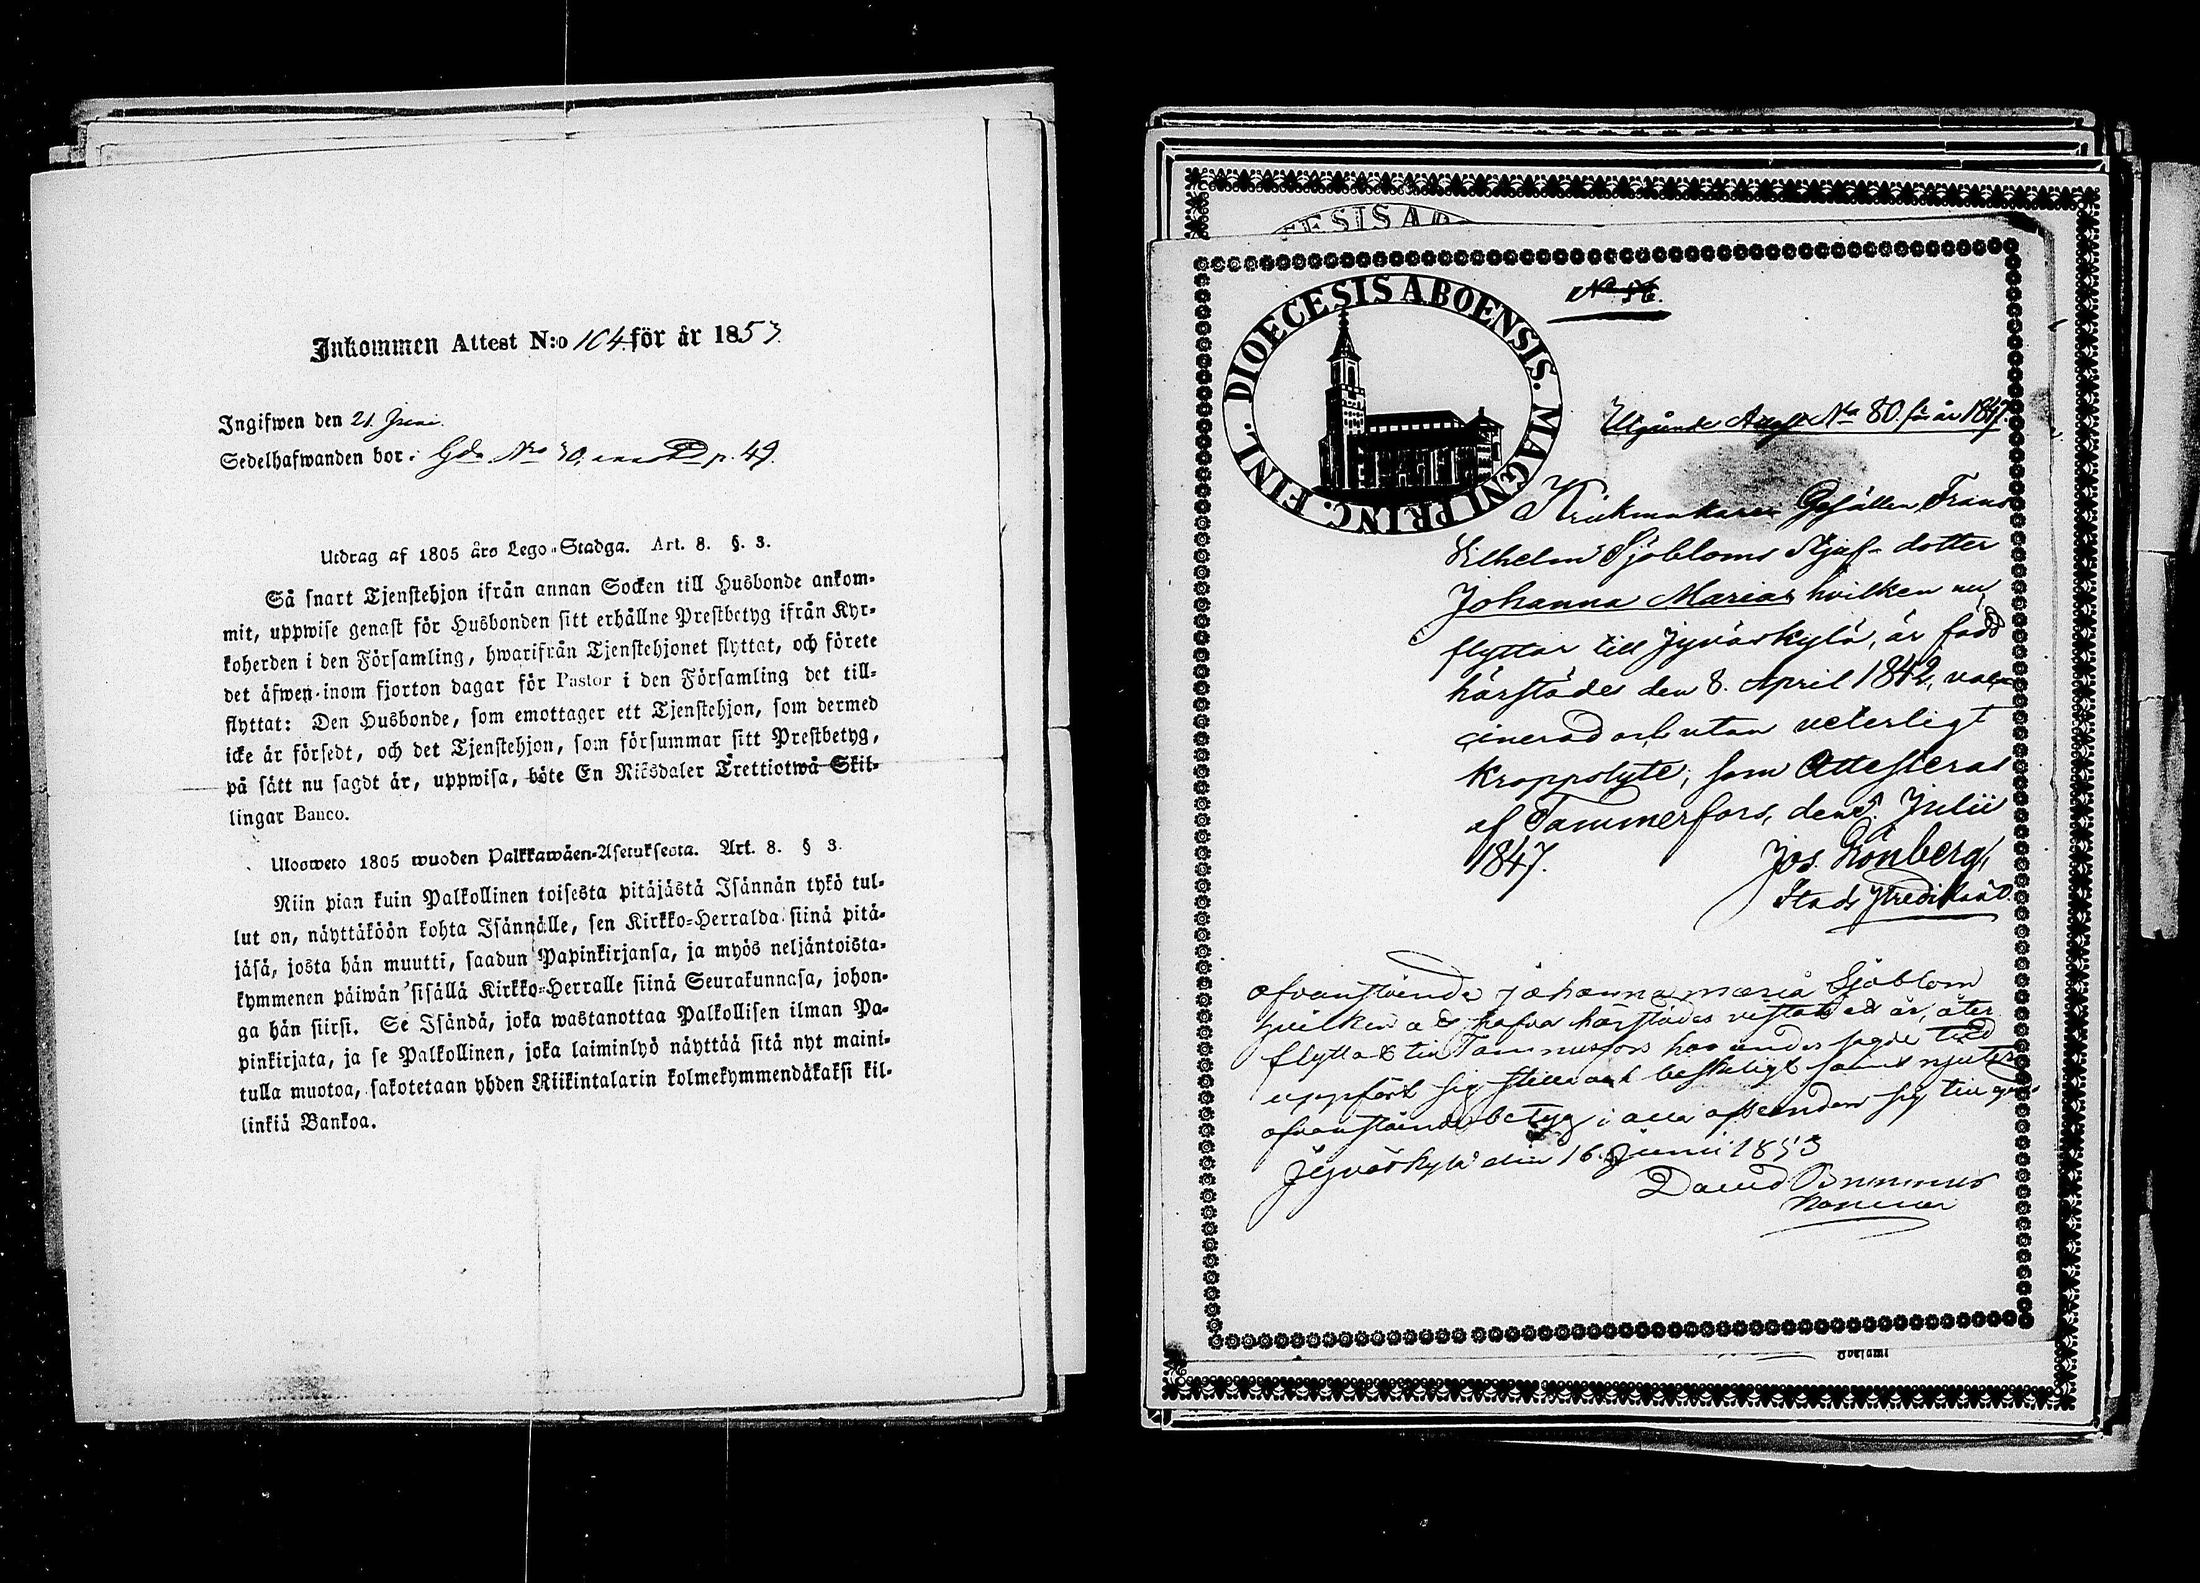 Inkommen Attest N:o 104 för år 1853.
Ingifwen den 21. Juni.
Sedelhafwanden bor: Gdn Nro 30, p. 49.
Utdrag af 1805 års Lego-Stadga. Art. 8. §. 3.
Så snart Tjenstehjon ifrån annan Socken till Husbonde ankom-
mit, uppwise genast för Husbonden sitt erhållne Prestbetyg ifrån Kyr-
koherden i den Församling, hwarifrån Tjenstehjonet flyttat, och förete
det äfwen inom fjorton dagar för Pastor i den Församling det till-
flyttat: Den Husbonde, som emottager ett Tjenstehjon, som dermed
icke är försedt, och det Tjenstehjon, som försummar sitt Prestbetyg,
på sätt nu sagdt är, uppwisa, böte En Riksdaler Trettiotwå Skil-
lingar Banco.
Ulosweto 1805 wuoden Palkkawäen-Asetuksesta. Art. 8. § 3.
Niin pian kuin Palkollinen toisesta pitäjästä Isännän tykö tul-
lut on, näyttäköön kohta Isännälle, sen Kirkko-Herralda siinä pitä-
jäsä, josta hän muutti, saadun Papinkirjansa, ja myös neljäntoista-
kymmenen päiwän sisällä Kirkko-Herralle siinä Seurakunnasa, johon-
ga hän siirsi. Se Isändä, joka wastanottaa Palkollisen ilman Pa-
pinkirjata, ja se Palkollinen, joka laiminlyö näyttää sitä nyt maini-
tulla muotoa, sakotetaan yhden Riikintalarin kolmekymmendäkaksi kil-
linkiä Bankoa.
ESIS AB
DIOECESIS ABOENSIS. MAGNI PRINC. FINL.
No 56.
Utgående Attest No 80 för år 1847.
Krukmakare Gesällen Frans
Vilhelm Sjöbloms Styf-dotter
Johanna Maria, hvilken nu
flyttar till Jyväskylä, är född
härstädes den 8. April 1842, vac-
cinerad och utan veterligt
kroppslyte; som Attesteras
af Tammerfors, den 5. Julii
1847. Jos. Grönberg,
Stads Predikant.
Ofvanstående Johanna Maria Sjöblom
hvilken efter hafva härstädes vistats ett år, åter
flyttat till Tammerfors har under sagde tid
uppfört sig stilla och beskeligt samt njuter
ofvanstående betyg i alla afseenden sig till godo
Jyväskylä den 16 Junii 1853
David
Församl